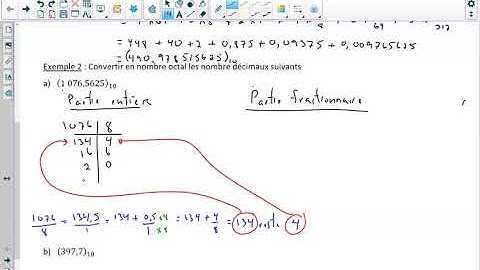 64 512
= 448 + 40 + 2 + 0,875 + 0,09375 + 0,009765625
= (490,978515625)₁₀
Exemple 2 : Convertir en nombre octal les nombre décimaux suivants
a) (1 076,5625)₁₀
Partie entière Partie fractionnaire
1076 | 8
134 | 4
16 | 6
2 | 0
1076/8 = 134,5/1 = 134 + 0,5/1 ×8 ×8 = 134 + 4/8 = 134 reste 4
b) (397,7)₁₀